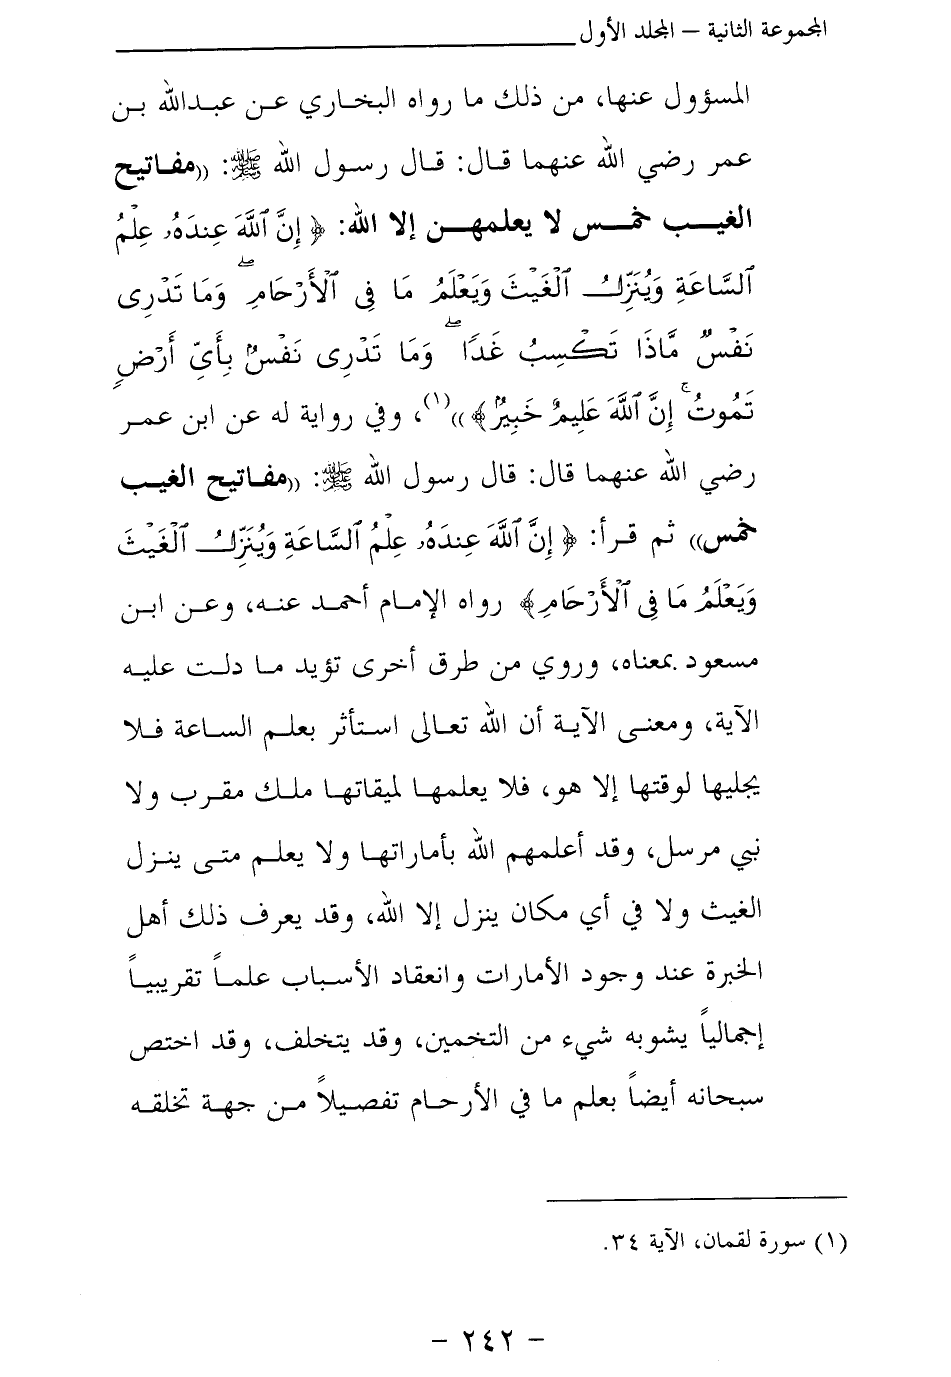 المجموعة الثانية – المجلد الأول
المسؤول عنها، من ذلك ما رواه البخاري عن عبدالله بن
عمر رضي الله عنهما قال: قال رسول الله ﷺ: ((مفاتيح
الغيب خمس لا يعلمهن إلا الله: ﴿ إِنَّ ٱللَّهَ عِندَهُۥ عِلْمُ
ٱلسَّاعَةِ وَيُنَزِّلُ ٱلْغَيْثَ وَيَعْلَمُ مَا فِى ٱلْأَرْحَامِ ۖ وَمَا تَدْرِى
نَفْسٌ مَّاذَا تَكْسِبُ غَدًا ۖ وَمَا تَدْرِى نَفْسٌۢ بِأَىِّ أَرْضٍ
تَمُوتُ ۚ إِنَّ ٱللَّهَ عَلِيمٌ خَبِيرٌۢ ﴾))(١)، وفي رواية له عن ابن عمر
رضي الله عنهما قال: قال رسول الله ﷺ: ((مفاتيح الغيب
خمس)) ثم قرأ: ﴿ إِنَّ ٱللَّهَ عِندَهُۥ عِلْمُ ٱلسَّاعَةِ وَيُنَزِّلُ ٱلْغَيْثَ
وَيَعْلَمُ مَا فِى ٱلْأَرْحَامِ ﴾ رواه الإمام أحمد عنه، وعن ابن
مسعود بمعناه، وروي من طرق أخرى تؤيد ما دلت عليه
الآية، ومعنى الآية أن الله تعالى استأثر بعلم الساعة فلا
يجليها لوقتها إلا هو، فلا يعلمها لميقاتها ملك مقرب ولا
نبي مرسل، وقد أعلمهم الله بأماراتها ولا يعلم متى ينزل
الغيث ولا في أي مكان ينزل إلا الله، وقد يعرف ذلك أهل
الخبرة عند وجود الأمارات وانعقاد الأسباب علماً تقريبياً
إجمالياً يشوبه شيء من التخمين، وقد يتخلف، وقد اختص
سبحانه أيضاً بعلم ما في الأرحام تفصيلاً من جهة تخلقه
(١) سورة لقمان، الآية ٣٤.
– ٢٤٢ –